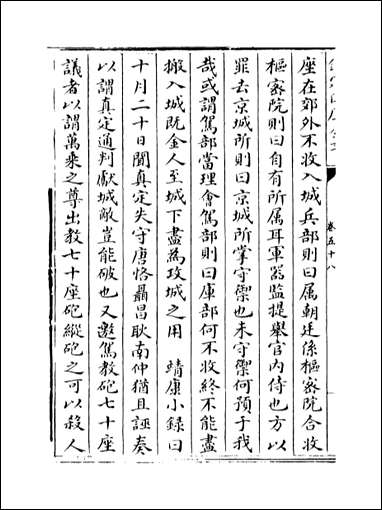 卷五十八
座在郊外不收入城兵部則曰属朝廷係樞密院合收
樞密院則曰自有所属耳軍器監提舉官内侍也方以
罪去京城所則曰京城所掌守禦也未守禦何預于我
哉或謂駕部當理會駕部則曰庫部何不收終不能盡
搬入城既金人至城下盡為攻城之用　靖康小録曰
十月二十日聞真定失守唐恪聶昌耿南仲猶且誣奏
以謂真定通判獻城敵豈能破也又邀駕教砲七十座
議者以謂萬乘之尊出教七十座砲縱砲之可以殺人